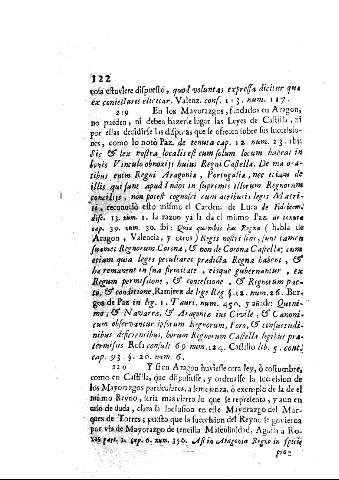 122
cosa estuviere dispuesto, quod voluntas expressa dicitur quæ
ex coniecturis elicitur. Valenz. cons. 103. num. 117.
219 En los Mayorazgos, fundados en Aragon,
no pueden, ni deben hazerse lugar las Leyes de Castilla, ni
por ellas decidirse las disputas que se ofrecen sobre sus successio-
nes, como lo notò Paz. de tenuta cap. 12. num. 23. ibi:
Sic & lex nostra localis est cum solum locum habeat in
bonis Vinculo obnoxiis huius Regni Castellæ. De ma o-
tibus enim Regni Aragoniæ, Portugaliæ, nec etiam de
illis qui sunt apud Indos in supremis illorum Regnorum
conciliis, non potest cognosci cum atributis legis Matri-
ti, reconociò esto mismo el Carden. de Luca de Fideicom.
disc. 13. num. 1. la razon ya la da el mismo Paz de tenuta
cap. 39. num. 30. ibi: Quia quamvis hæc Regna (habla de
Aragon, Valencia, y otros) Reges nostri sint, sunt tamen
Regnorum Corona, & non de Corona Castellæ; cum
etiam quia leges peculiares prædicta Regna habent, &
ha remanent in sua firmitate, eisque gubernantur, ex
Regum permissione, & concessione, & Regnorum pac-
tis, & conditione, Ramirez de lege Reg §. 12. num. 26. Bur-
gos de Paz in leg. 1. Tauri. num. 450. y añade: Quini-
mo, & Navarra, & Aragonia ius Civile, & Canoni-
cum observantur ipsorum Regnorum, Foro, & consuetudi-
nibus deficientibus, horum Regnorum Castellæ legibus præ-
termissis Rosa consult. 69 num. 124. Castillo lib. 5. cont.
cap. 93. §. 20. num. 6.
220 Y si en Aragon huviesse otra ley, ò costumbre,
como en Castilla, que dispusiesse, y ordenasse la sucesion de
los Mayorazgos particulares, à semejanza, ò exemplo de la de el
mismo Reyno, seria mas cierto lo que se representa, y aun en
caso de duda, clara la inclusion en este Mayorazgo del Mar-
ques de Torres; puesto que la succession del Reyno se govierna
por via de Mayorazgo de sencilla Masculinidad, Aguila à Ro-
xas part. 2. cap. 6. num. 350. Aſt in Aragonia Regno in specie
pro-